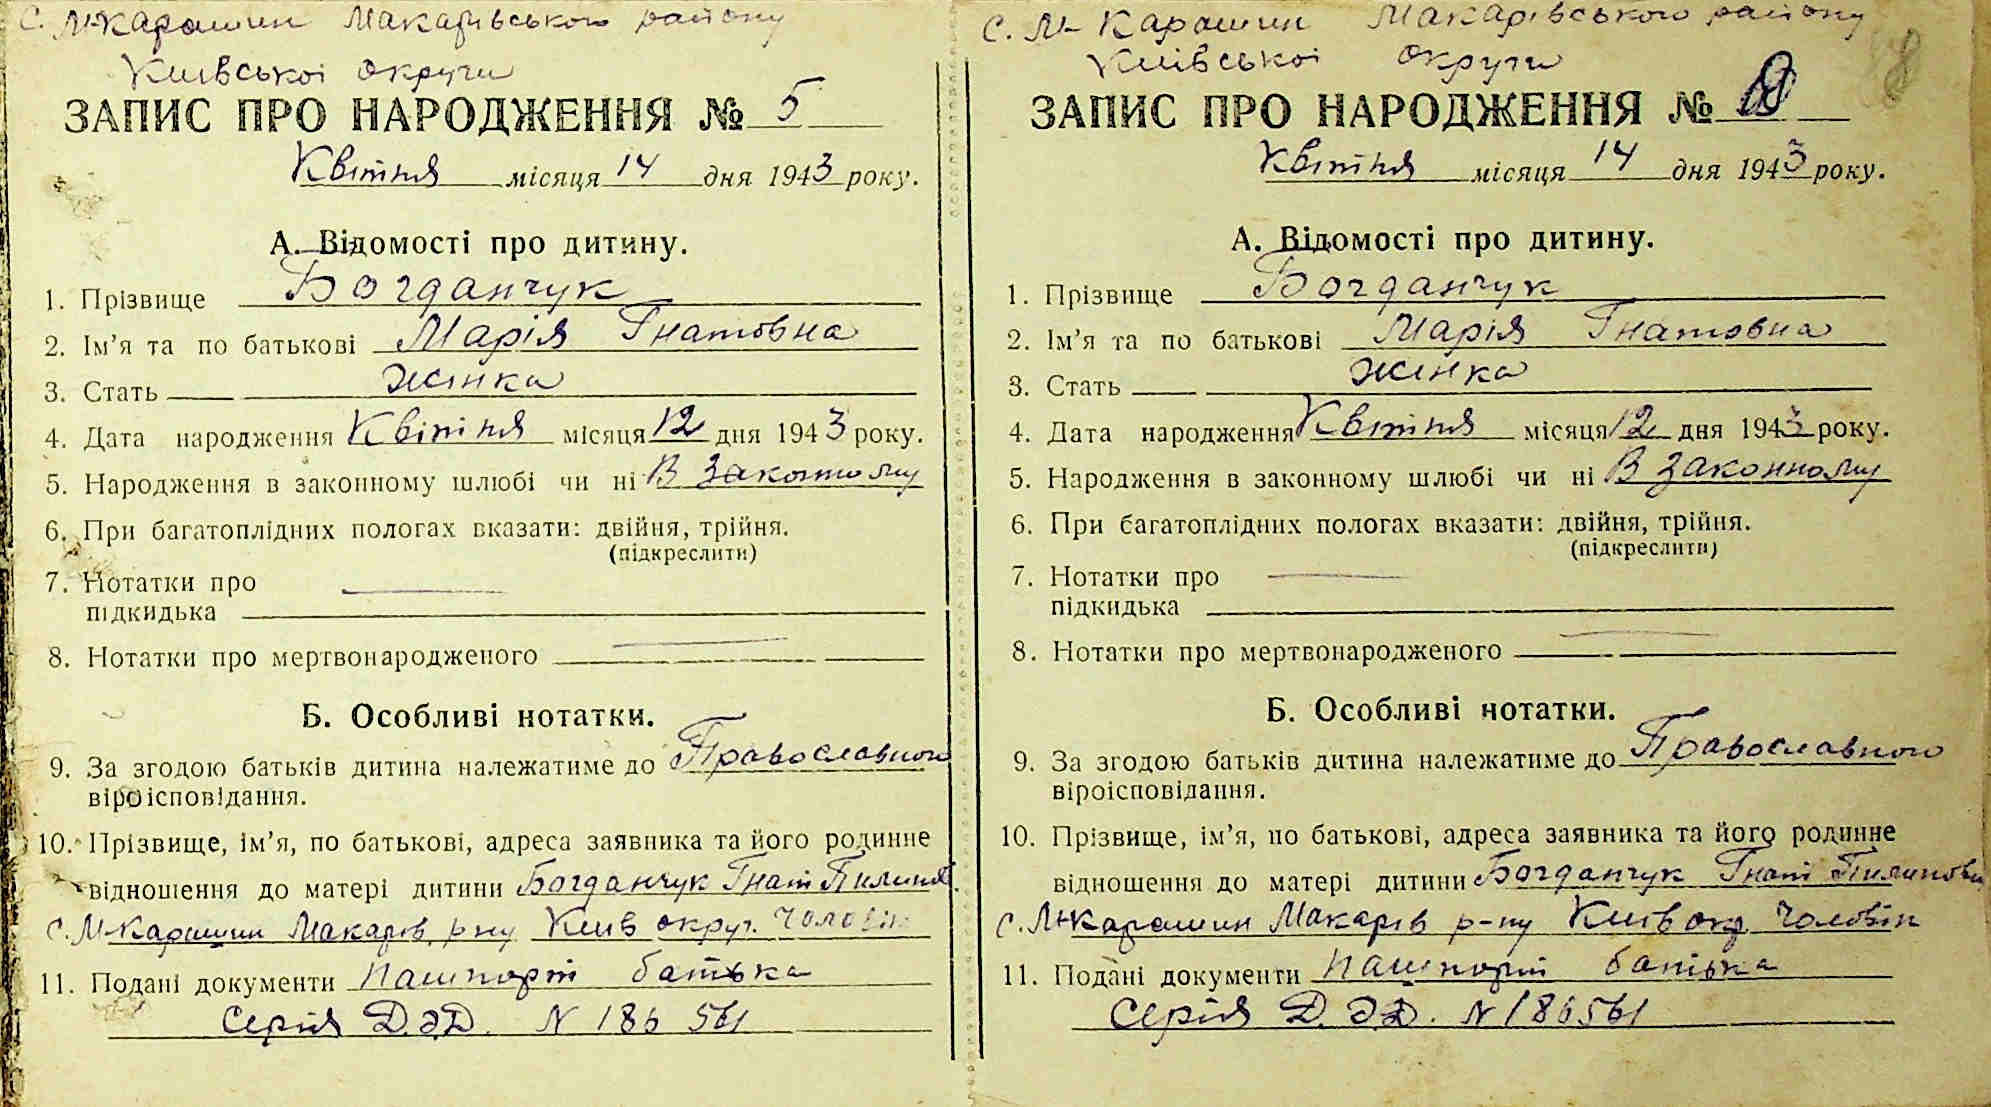 с. М-Карашин Макарівського району
Київської округи
ЗАПИС ПРО НАРОДЖЕННЯ № 5
Квітня місяця 14 дня 1943 року.
А. Відомості про дитину.
1. Прізвище Богданчук
2. Ім'я та по батькові Марія Гнатовна
3. Стать жінка
4. Дата народження Квітня місяця 12 дня 1943 року.
5. Народження в законному шлюбі чи ні В законному
6. При багатоплідних пологах вказати: двійня, трійня.
(підкреслити)
7. Нотатки про
підкидька
8. Нотатки про мертвонародженого
Б. Особливі нотатки.
9. За згодою батьків дитина належатиме до Православного
віроісповідання.
10. Прізвище, ім'я, по батькові, адреса заявника та його родинне
відношення до матері дитини Богданчук Гнат
с. М-Карашин Макарів. р-ну Київ округ. Чоловік
11. Подані документи Пашпорт батька
Серія Д.Э.Д. N 186 561
с. М-Карашин Макарівського району
Київської округи
ЗАПИС ПРО НАРОДЖЕННЯ №
Квітня місяця 14 дня 1943 року.
А. Відомості про дитину.
1. Прізвище Богданчук
2. Ім'я та по батькові Марія Гнатовна
3. Стать жінка
4. Дата народження Квітня місяця 12 дня 1943 року.
5. Народження в законному шлюбі чи ні В законному
6. При багатоплідних пологах вказати: двійня, трійня.
(підкреслити)
7. Нотатки про
підкидька
8. Нотатки про мертвонародженого
Б. Особливі нотатки.
9. За згодою батьків дитина належатиме до Православного
віроісповідання.
10. Прізвище, ім'я, по батькові, адреса заявника та його родинне
відношення до матері дитини Богданчук Гнат Пилипови
с. М-Карашин Макарів р-ну Київ окр. Чоловік
11. Подані документи Пашпорт батька
Серія Д.Э.Д. N 186561